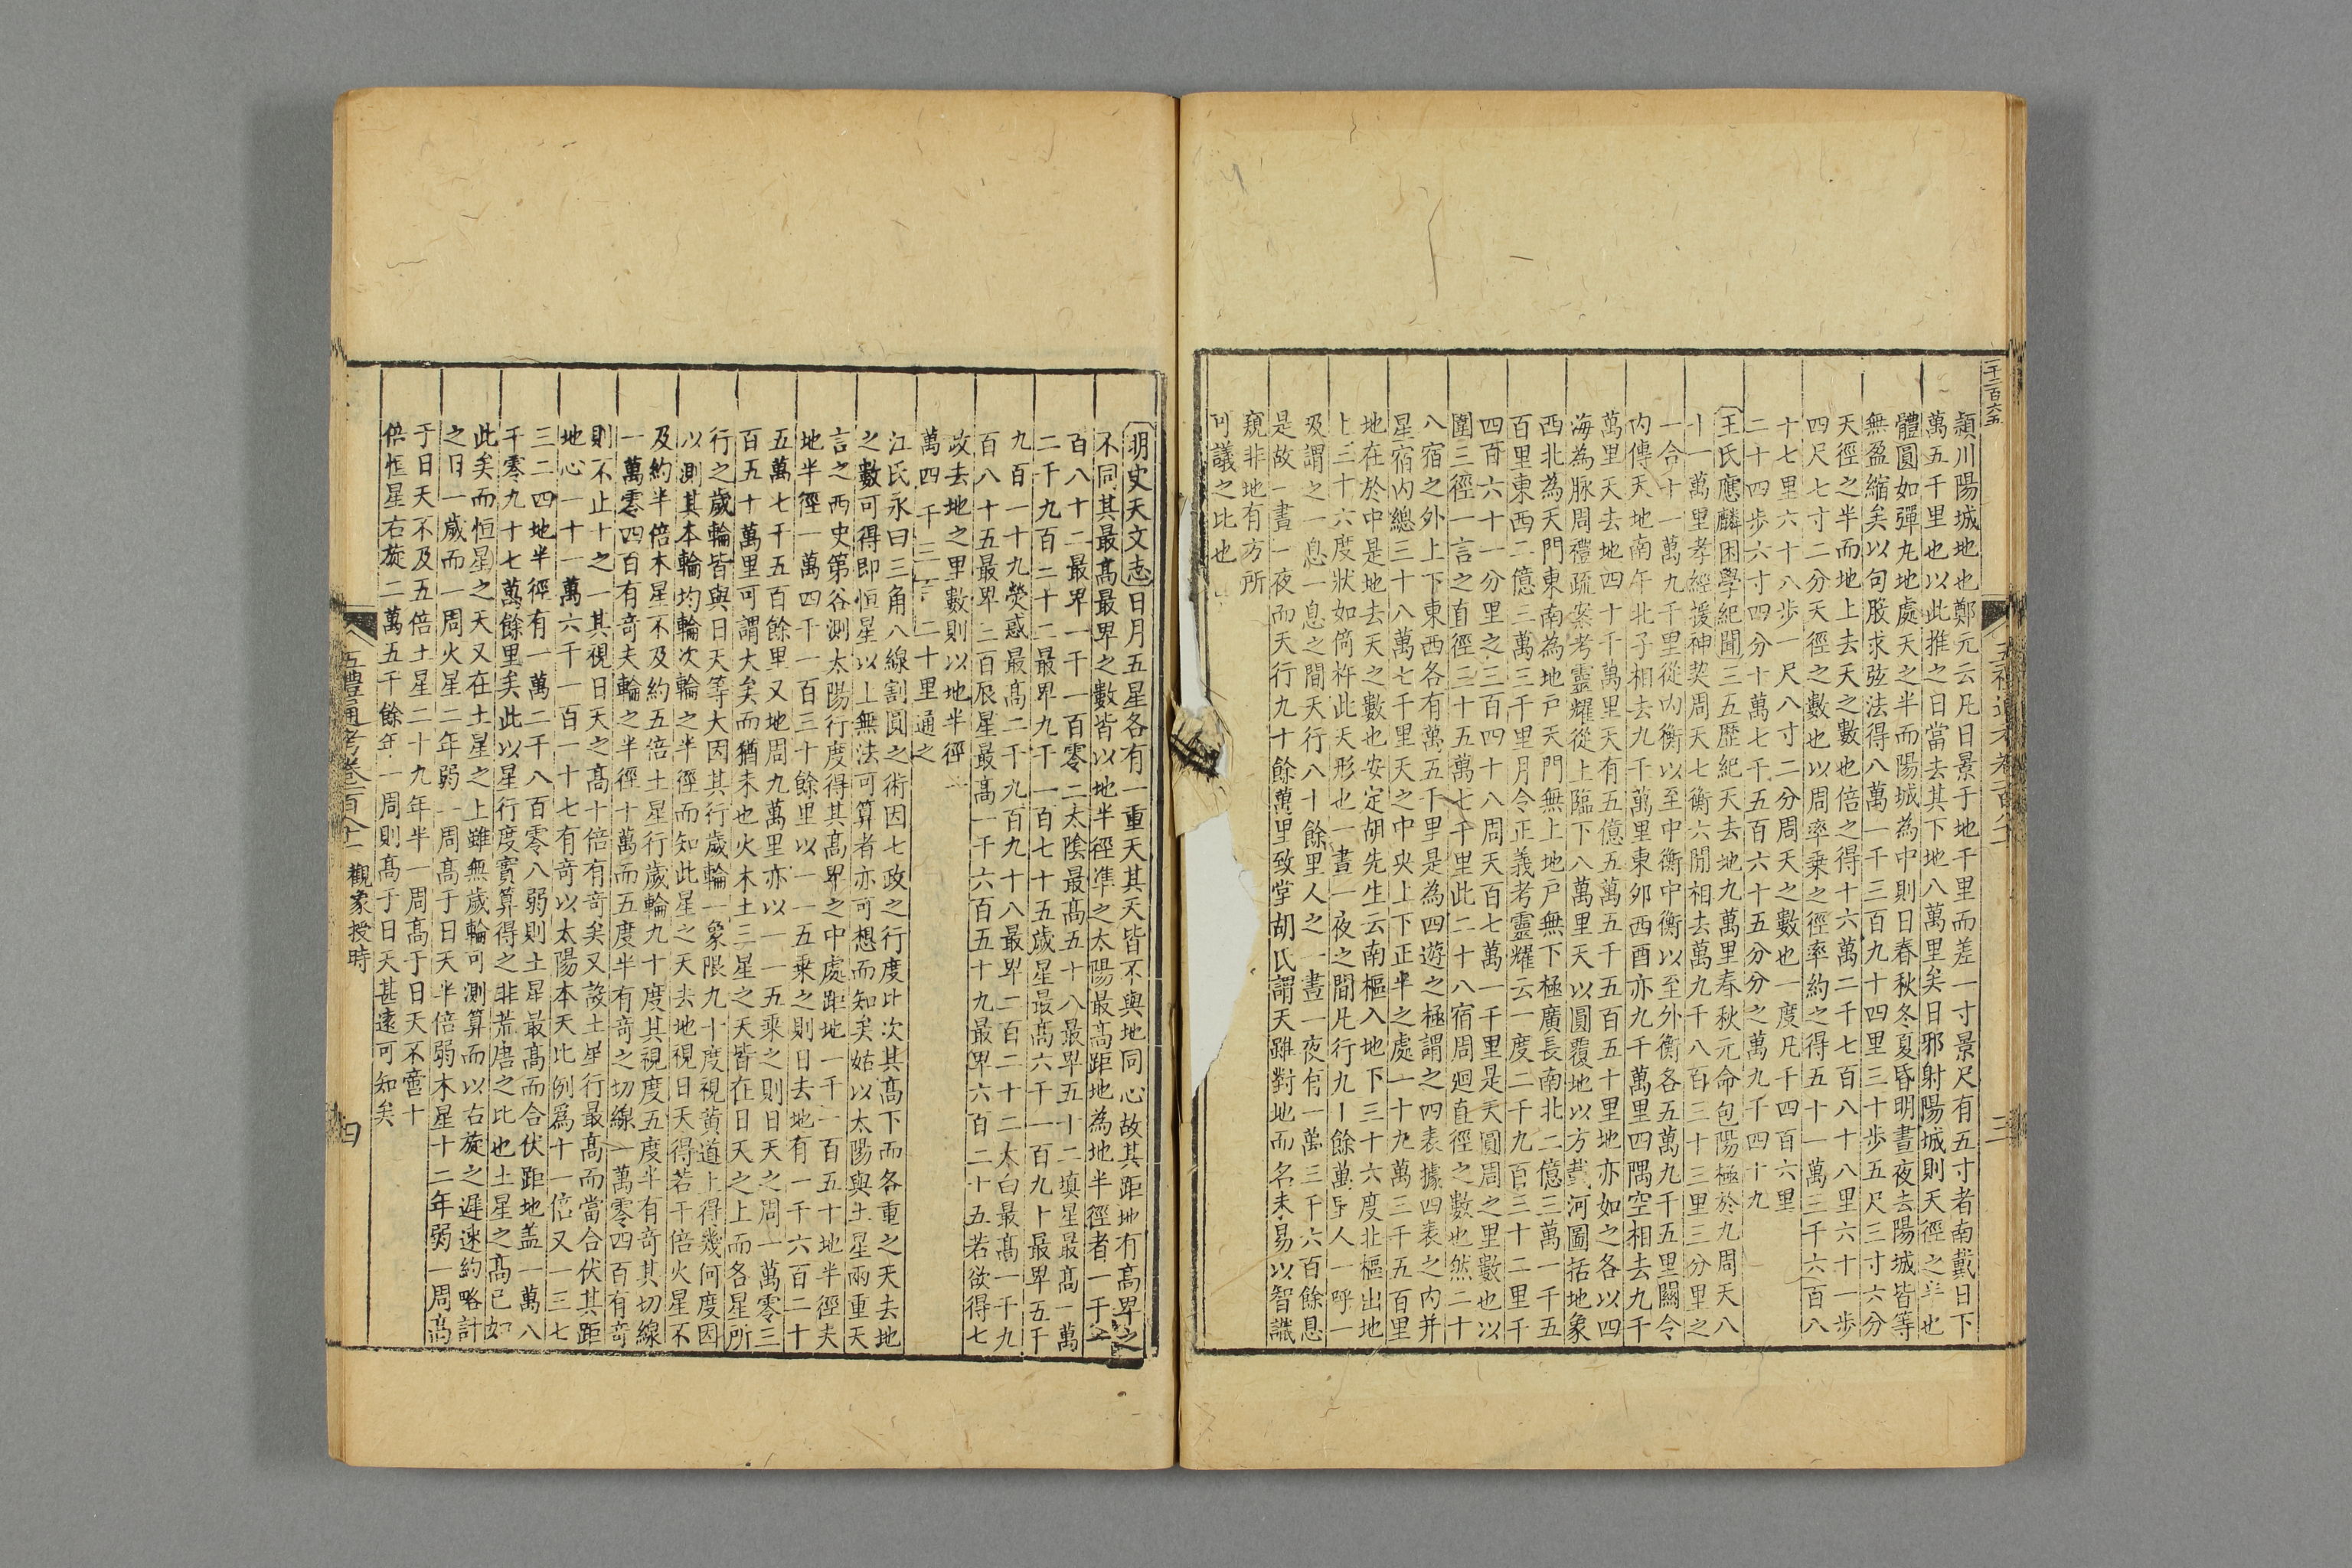 潁川陽城地也鄭元云凡日景于地千里而差一寸景尺有五寸者南戴日下
萬五千里也以此推之日當去其下地八萬里矣日邪射陽城則天徑之半也
體圓如彈丸地處天之半而陽城為中則日春秋冬夏昏明晝夜去陽城皆等
無盈縮矣以句股求弦法得八萬一千三百九十四里三十步五尺三寸六分
天徑之半而地上去天之數也倍之得十六萬二千七百八十八里六十一步
四尺七寸二分天徑之數也以周率乘之徑率約之得五十一萬三千六百八
十七里六十八步一尺八寸二分周天之數也一度凡千四百六里
二十四步六寸四分十萬七千五百六十五分分之萬九千四十九
王氏應麟困學紀聞三五歷紀天去地九萬里春秋元命包陽極於九周天八
十一萬里孝經援神契周天七衡六間相去萬九千八百三十三里三分里之
一合十一萬九千里從內衡以至中衡中衡以至外衡各五萬九千五里關令
內傳天地南午北子相去九千萬里東卯西酉亦九千萬里四隅空相去九千
萬里天去地四十千萬里天有五億五萬五千五百五十里地亦如之各以四
海為脉周禮疏案考靈耀從上臨下八萬里天以圓覆地以方載河圖括地象
西北為天門東南為地戸天門無上地戸無下極廣長南北二億三萬一千五
百里東西二億三萬三千里月令正義考靈耀云一度二千九百三十二里千
四百六十一分里之三百四十八周天百七萬一千里是天圓周之里數也以
圍三徑一言之直徑三十五萬七千里此二十八宿周迴直徑之數也然二十
八宿之外上下東西各有萬五千里是為四遊之極謂之四表據四表之內并
星宿內總三十八萬七千里天之中央上下正半之處一十九萬三千五百里
地在於中是地去天之數也安定胡先生云南樞入地下三十六度北樞出地
上三十六度狀如倚杵此天形也一晝一夜之間凡行九十餘萬里人一呼一
吸謂之一息一息之間天行八十餘里人之一晝一夜有一萬三千六百餘息
是故一晝一夜而天行九十餘萬里致堂胡氏謂天雖對地而名未易以智識
窺非地有方所
可議之比也
明史天文志日月五星各有一重天其天皆不與地同心故其距地有高卑之
不同其最高最卑之數皆以地半徑準之太陽最高距地為地半徑者一千一
百八十二最卑一千一百零二太陰最高五十八最卑五十二填星最高一萬
二千九百二十二最卑九千一百七十五歲星最高六千一百九十最卑五千
九百一十九熒惑最高二千九百九十八最卑二百二十二太白最高一千九
百八十五最卑三百辰星最高一千六百五十九最卑六百二十五若欲得七
政去地之里數則以地半徑一
萬四千 二十里通之
江氏永曰三角八線割圓之術因七政之行度比次其高下而各重之天去地
之數可得即恒星以上無法可算者亦可想而知矣姑以太陽與土星兩重天
言之西史第谷測太陽行度得其高卑之中處距地一千一百五十地半徑夫
地半徑一萬四千一百三十餘里以一一五乘之則日去地有一千六百二十
五萬七千五百餘里又地周九萬里亦以一一五乘之則日天之周一萬零三
百五十萬里可謂大矣而猶未也火木土三星之天皆在日天之上而各星所
行之歲輪皆與日天等大因其行歲輪一象限九十度視黄道上得幾何度因
以測其本輪均輪次輪之半徑而知此星之天去地視日天得若干倍火星不
及約半倍木星不及約五倍土星行歲輪九十度其視度五度半有奇其切線
一萬零四百有奇夫輪之半徑十萬而五度半有奇之切線一萬零四百有奇
則不止十之一其視日天之高十倍有奇矣又設土星行最高而當合伏其距
地心一十一萬六千一百一十七有奇以太陽本天比例爲十一倍又一三七
三二四地半徑有一萬二千八百零八弱則土星最高而合伏距地盖一萬八
千零九十七萬餘里矣此以星行度實算得之非荒唐之比也土星之高已如
此矣而恒星之天又在土星之上雖無歲輪可測算而以右旋之遲速約略計
之日一歲而一周火星二年弱一周高于日天半倍弱木星十二年弱一周高
于日天不及五倍土星二十九年半一周高于日天不啻十
倍恒星右旋二萬五千餘年一周則高于日天甚遠可知矣
五禮通考卷一百八十一 觀象授時
四